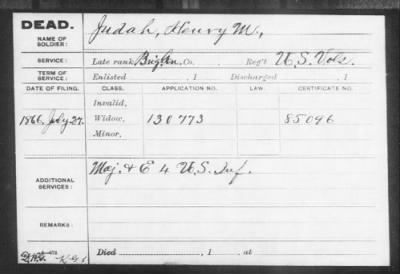 DEAD.
NAME OF SOLDIER: Judah, Henry M.,
SERVICE: Late rank, Brig Gen, Co. Reg't U.S. Vols.
TERM OF SERVICE: Enlisted , 1 Discharged , 1
DATE OF FILING. CLASS. APPLICATION NO. LAW CERTIFICATE NO.
Invalid,
1866, July 27. Widow, 130773 85096
Minor,
ADDITIONAL SERVICES: Maj. & E 4 U.S. Inf.
REMARKS:
Died , 1 , at